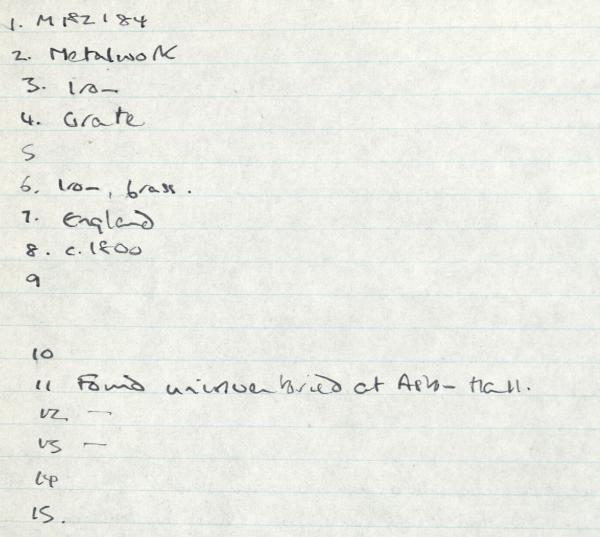 1. M182184
2. Metalwork
3. Iron
4. Grate
5
6. Iron, brass.
7. England
8. c.1800
9
10
11 Found uninventoried at Aston Hall.
12 —
13 —
14
15.